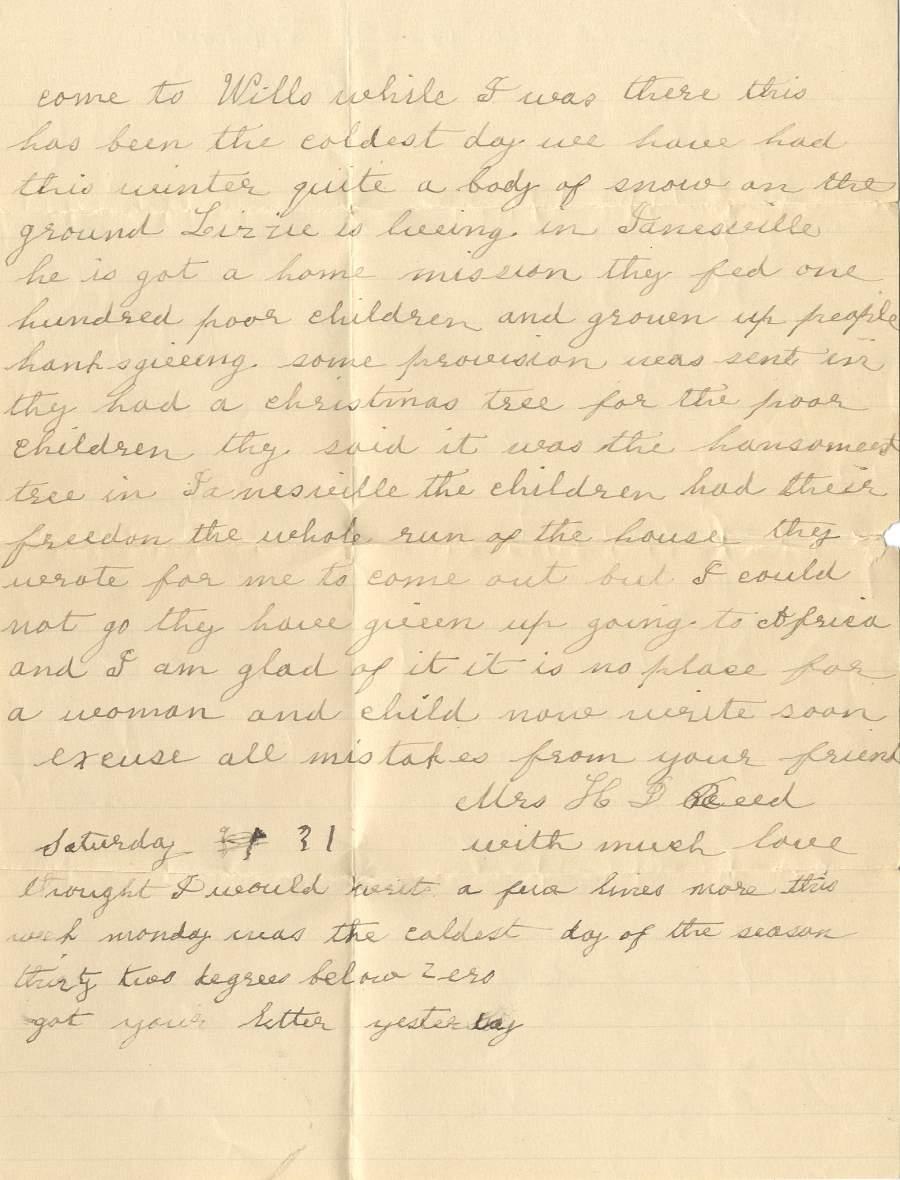 come to Wills while I was there this
has been the coldest day we have had
this winter quite a body of snow on the
ground Lizzie is living in Janesville
he is got a home mission they fed one
hundred poor children and grown up people
hanksgiveing some provision was sent in
thy had a christmas tree for the poor
children thy said it was the hansomest
tree in Janesville the children had their
freedon the whole run of the house they
wrote for me to come out but I could
not go thy have given up going to Africa
and I am glad of it it is no place for
a woman and child now write soon
excuse all mistakes from your friend
Mrs H J Reed
Saturday 31 with much love
thought I would write a few lines more this
week monday was the coldest day of the season
thirty two degrees below zero
got your letter yesterday